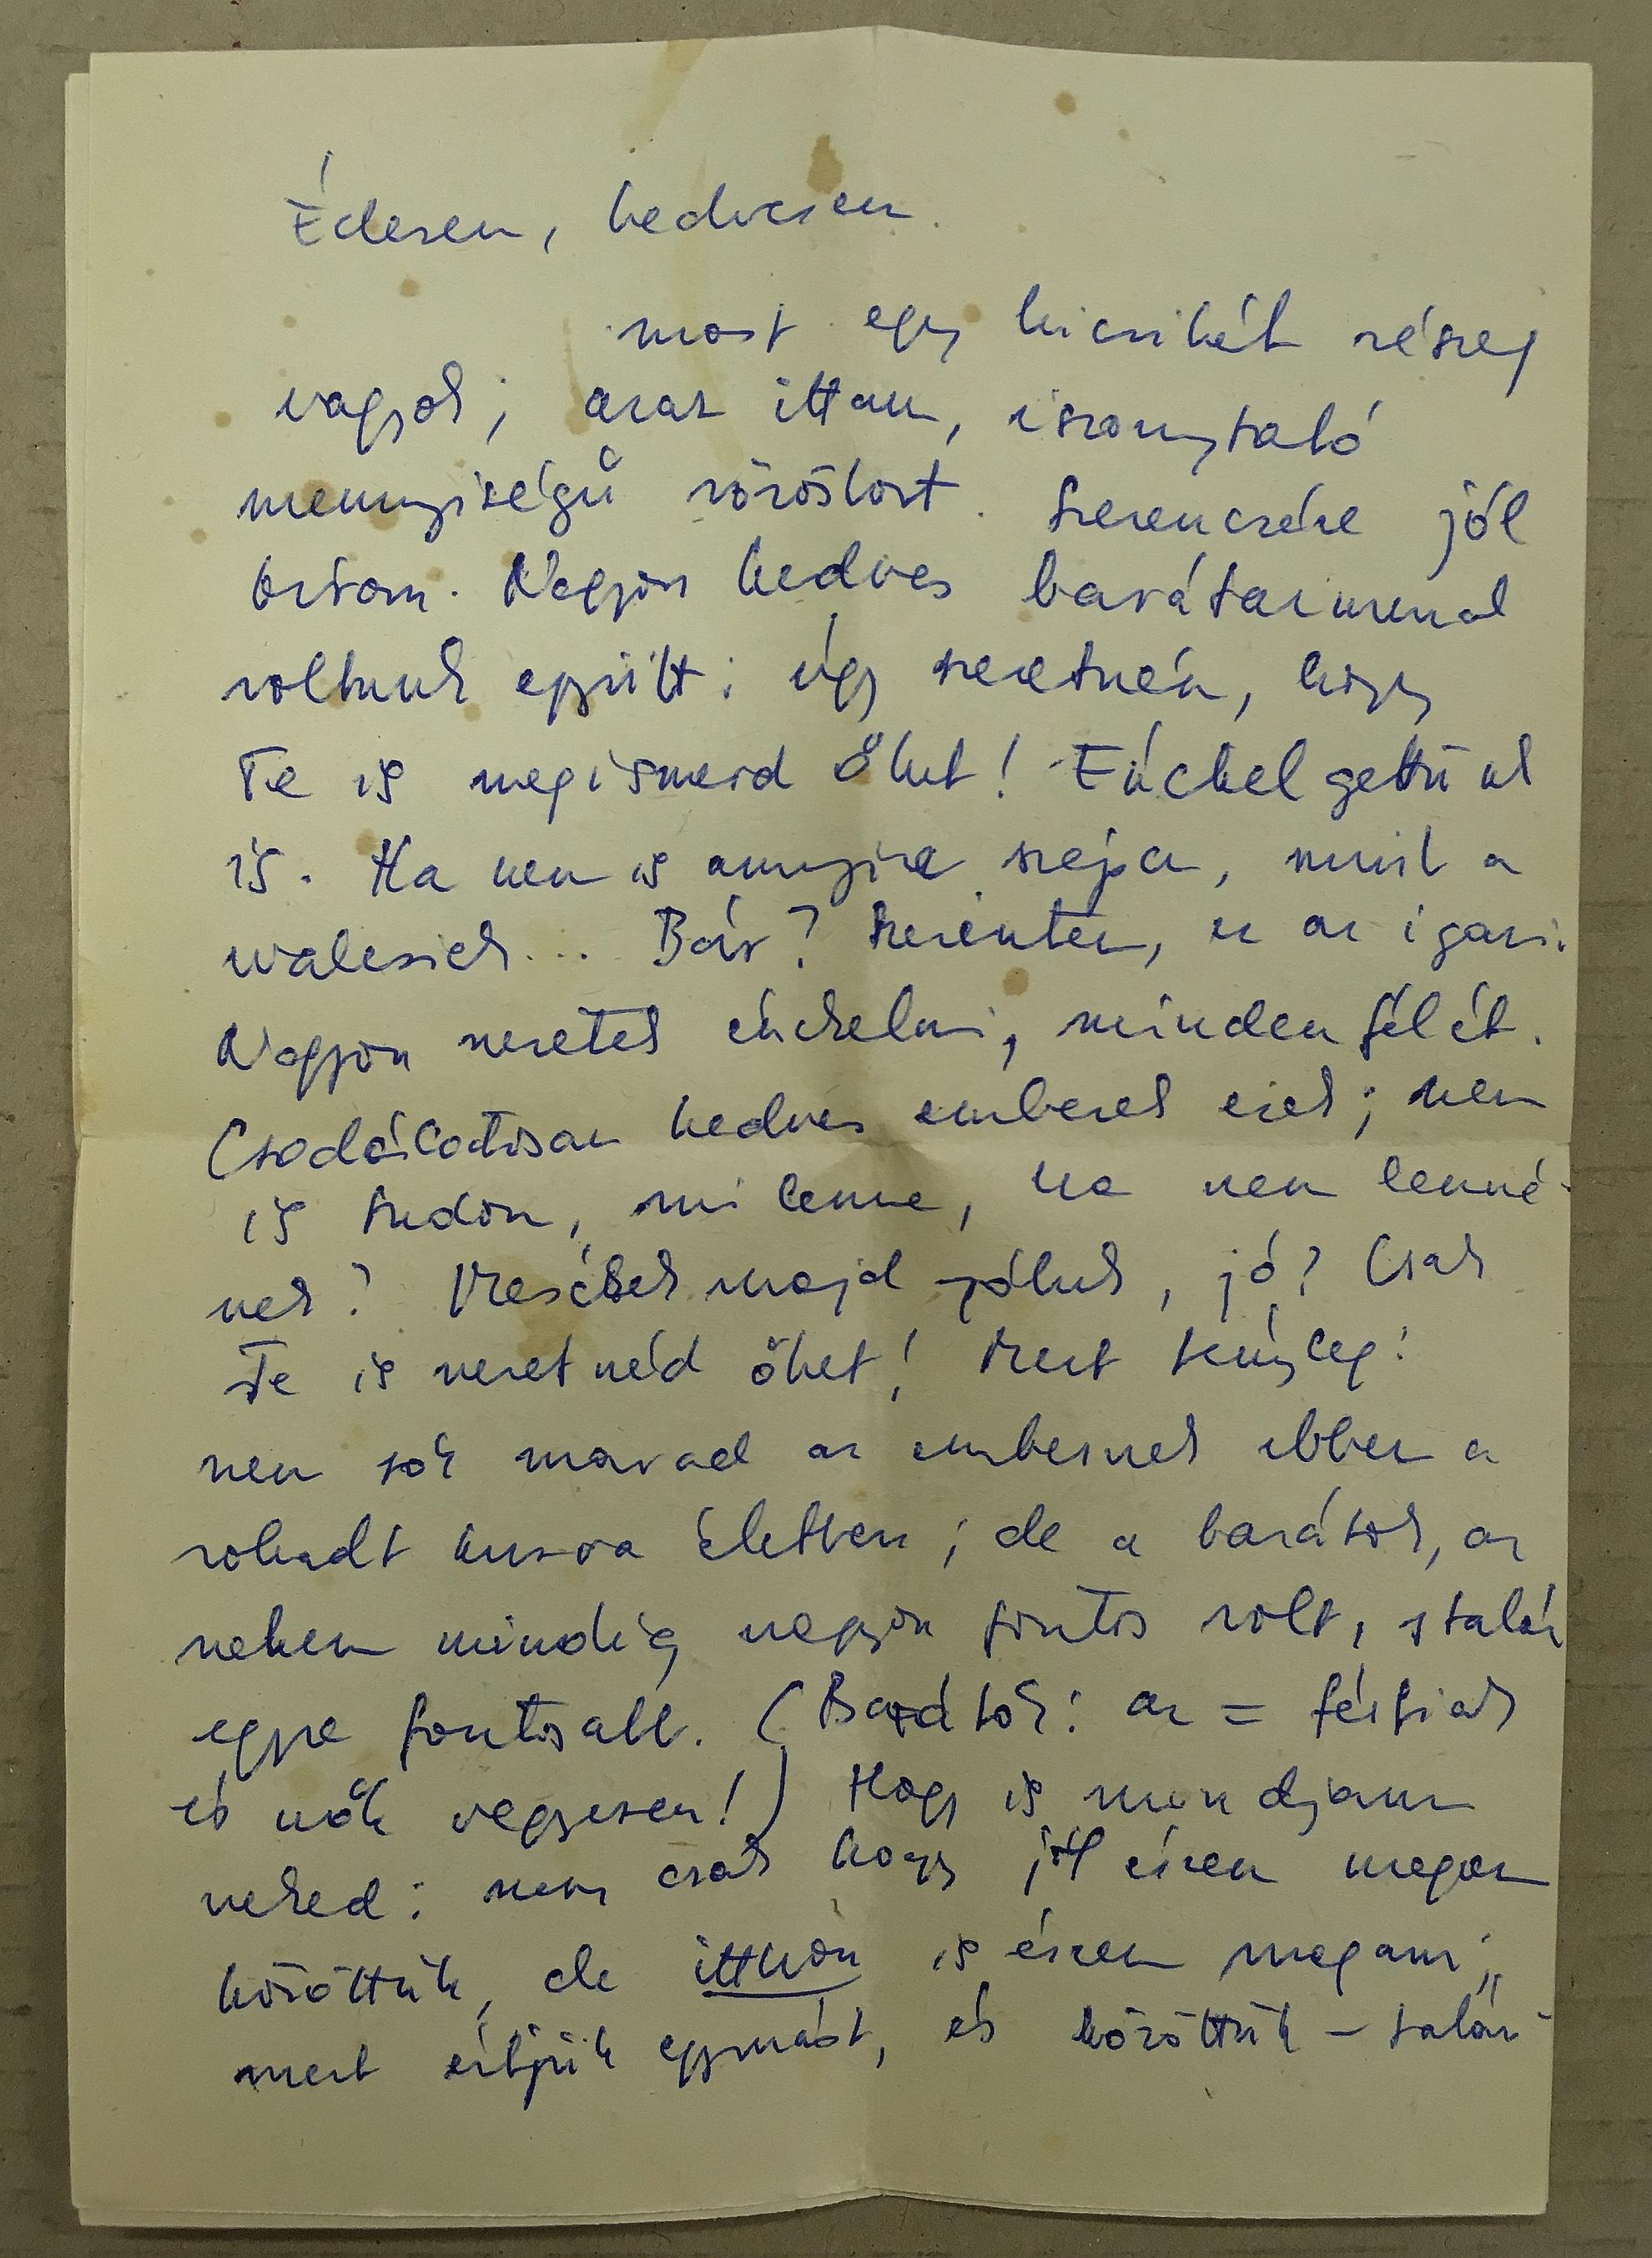 Édesem, kedvesem.
most egy kicsikét részeg
vagyok; azaz ittam, iszonytató
mennyiségű vörösbort. Szerencsére jól
bírom. Nagyon kedves barátaimmal
voltunk együtt: úgy szeretném, hogy
Te is megismerd őket! Énekelgettünk
is. Ha nem is annyira szépen, mint a
walesiek... Bár? Szerintem, ez az igazi.
Nagyon szeretek énekelni, mindenfélét.
Csodálatosan kedves emberek ezek; nem
is tudom, mi lenne, ha nem lenné-
nek? Mesélek majd róluk, jó? Csak
Te is szeretnéd őket! Mert tényleg:
nem sok marad az embernek ebben a
rohadt kurva életben; de a barátok, az
nekem mindig nagyon fontos volt, s talán
egyre fontosabb. (Barátok: az = férfiak
és nők vegyesen!) Hogy is mondjam
neked: nem csak hogy jól érzem magam
közöttük, de itthon is érzem magam;
mert értjük egymást, és közöttük – talán